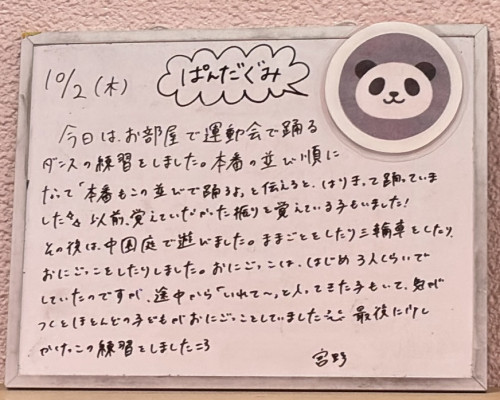 10/2(木)
ぱんだぐみ
今日は、お部屋で運動会で踊る
ダンスの練習をしました。本番の並び順に
なって「本番もこの並びで踊るよ」と伝えると、はりきって踊っていま
した。以前、覚えていなかった振りを覚えている子もいました!
その後は、中国庭で遊びました。ままごとをしたり三輪車をしたり、
おにごっこをしたりしました。おにごっこは、はじめ3人くらいで
していたのですが、途中から「いれて〜」と入ってきた子もいて、気が
つくとほとんどの子どもがおにごっこをしていました。最後に少し
かけっこの練習をしました
宮野